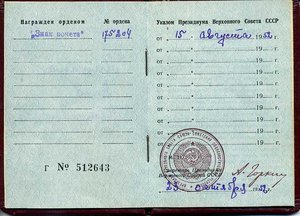 Награжден орденом № ордена
"Знак почета" 175204
г № 512643
Указом Президиума Верховного Совета СССР
от "15" августа 1952 г.
от 19 г.
от 19 г.
от 19 г.
от 19 г.
от 19 г.
от 19 г.
от 19 г.
Секретарь Президиума
Верховного Совета СССР
А. Горкин
23 сентября 1952 г.